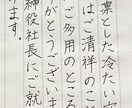 凛とした冷たい空
はご清祥のこと
ご多用のところ
がとうございま
締役社長にご就
ります。